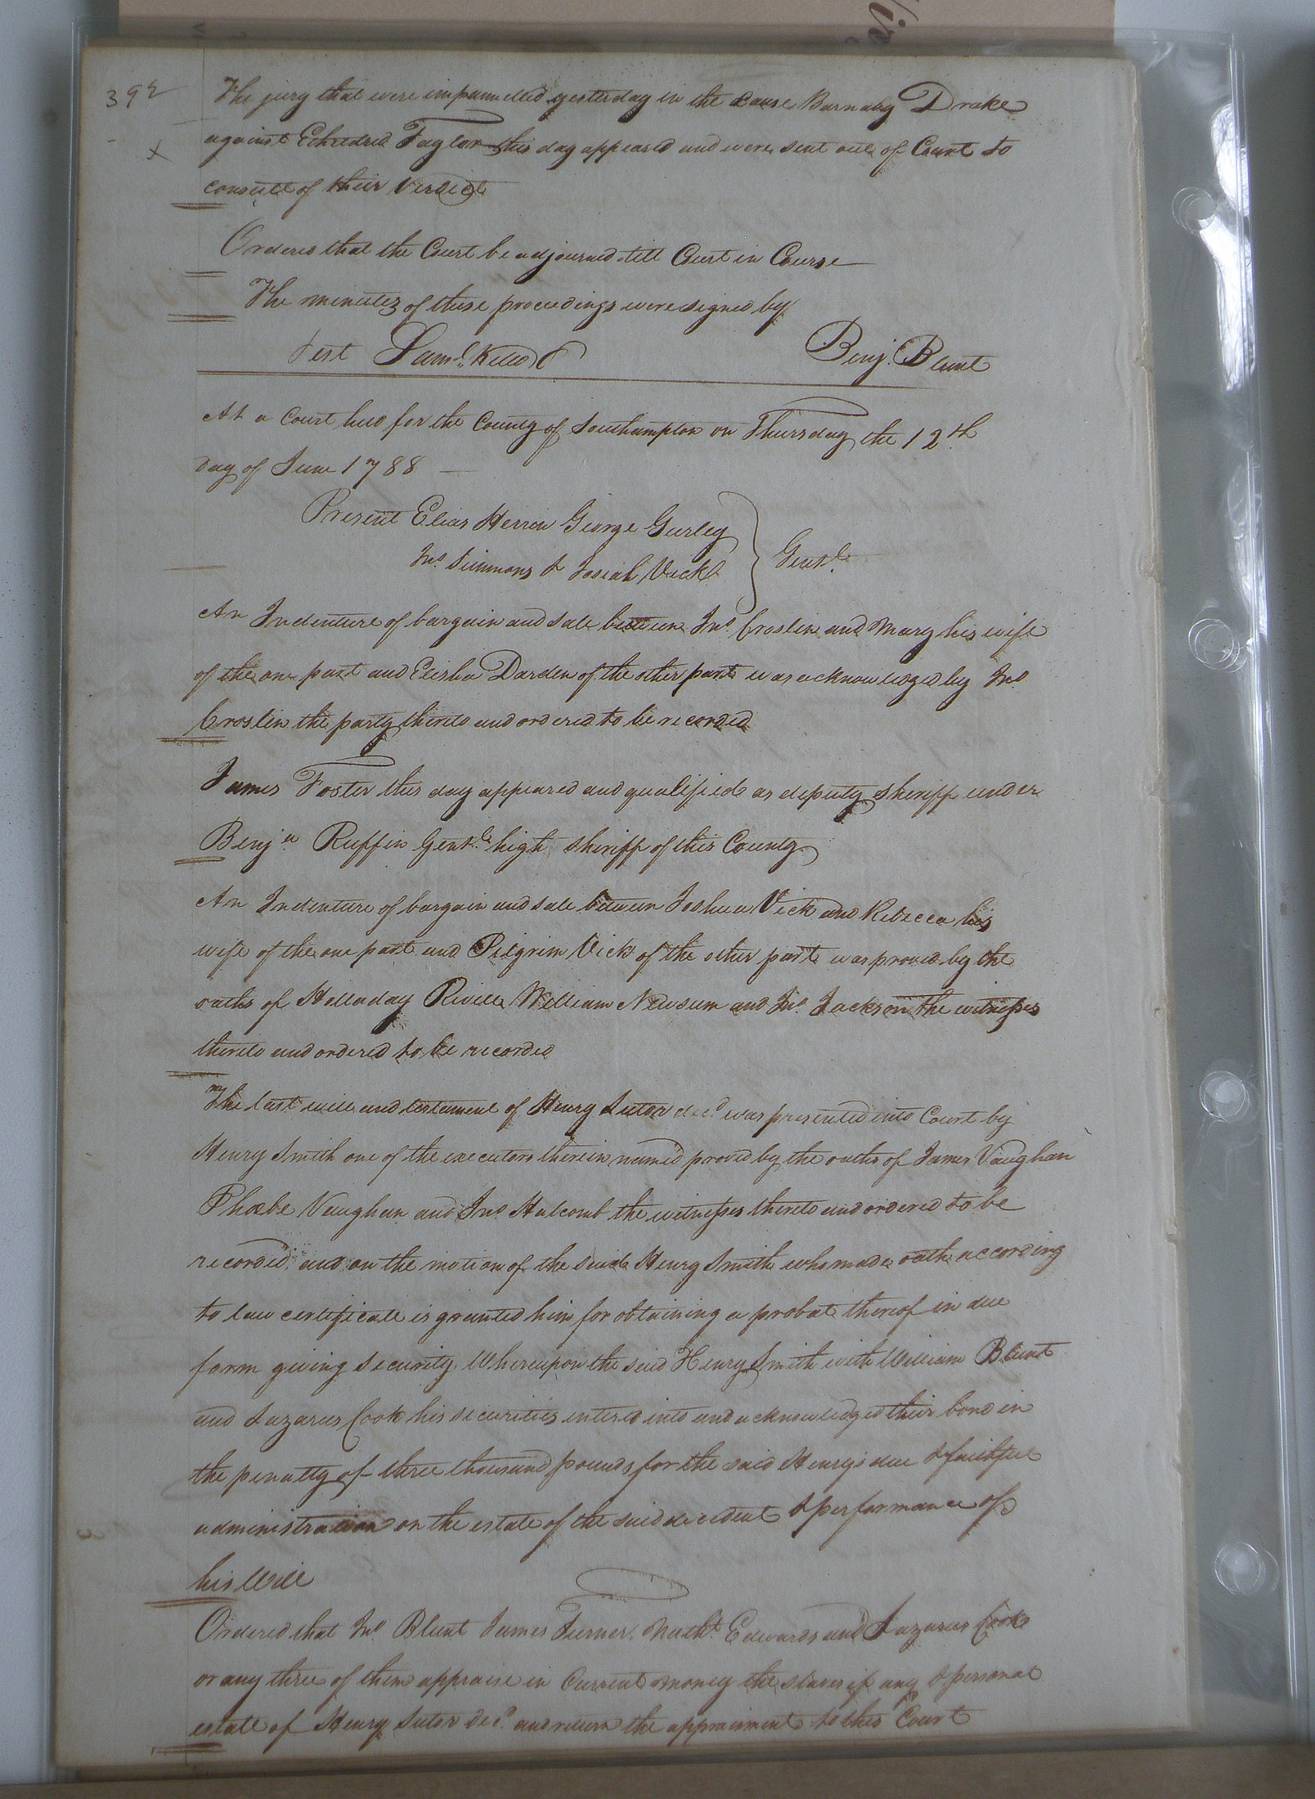 392
The jury that were impannelled yesterday in the cause Barnaby Drake
x
against Etheldred Taylor this day appeared and were sent out of Court to
consult of their Verdict
Ordered that the Court be adjourned till Court in Course
The minutes of these proceedings were signed by
Test Saml. Kello C Benj. Blunt
At a Court held for the County of Southampton on Thursday the 12th
day of June 1788
Present Elias Herrin George Gurley
Jno. Simmons & Josiah Vick Gentl.
An Indenture of bargain and sale between Jno. Croslin and Mary his wife
of the one part and Elisha Darden of the other part was acknowledged by Jno.
Croslin the party thereto and ordered to be recorded
James Foster this day appeared and qualified as deputy sheriff under
Benjn. Ruffin Gentl. high sheriff of this County
An Indenture of bargain and sale between Joshua Vick and Rebecca his
wife of the one part and Pilgrim Vick of the other part was proved by the
oaths of Holladay Rivell William Newsum and Jno. Jackson the witnesses
thereto and ordered to be recorded
The last will and testament of Henry Sutor decd. was presented into Court by
Henry Smith one of the executors therein named proved by the oaths of James Vaughan
Phœbe Vaughan and Jno. Halcomb the witnesses thereto and ordered to be
recorded and on the motion of the said Henry Smith who made oath according
to law certificate is granted him for obtaining a probat thereof in due
form giving security. Whereupon the said Henry Smith with William Blunt
and Lazarus Cook his securities entered into and acknowledged their bond in
the penalty of three thousand pounds for the said Henry's due & faithful
administration on the estate of the said decedent & performance of
his Will
Ordered that Jno. Blunt James Turner Matht. Edwards and Lazarus Cook
or any three of them appraise in Current money the slaves if any & personal
estate of Henry Sutor decd. and return the appraisment to this Court